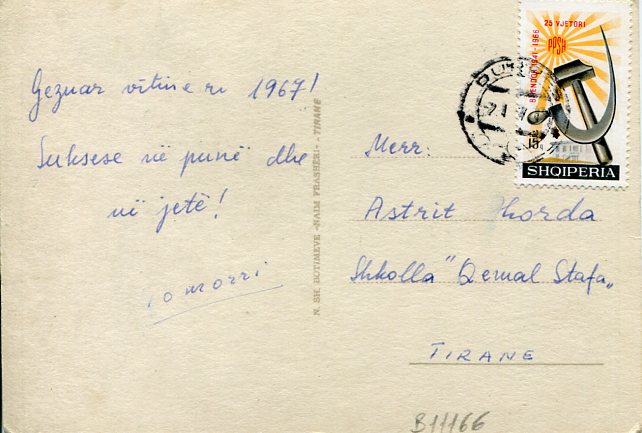 Gezuar vitin e ri 1967!
Suksese në punë dhe
në jetë!
N. SH. BOTIMEVE «NAIM FRASHËRI» - TIRANE
25 VJETORI
PPSH
8 NENDOR 1941-1966
SHQIPERIA
Merr:
Astrit
Shkolla "Qemal Stafa„
TIRANE
B11166